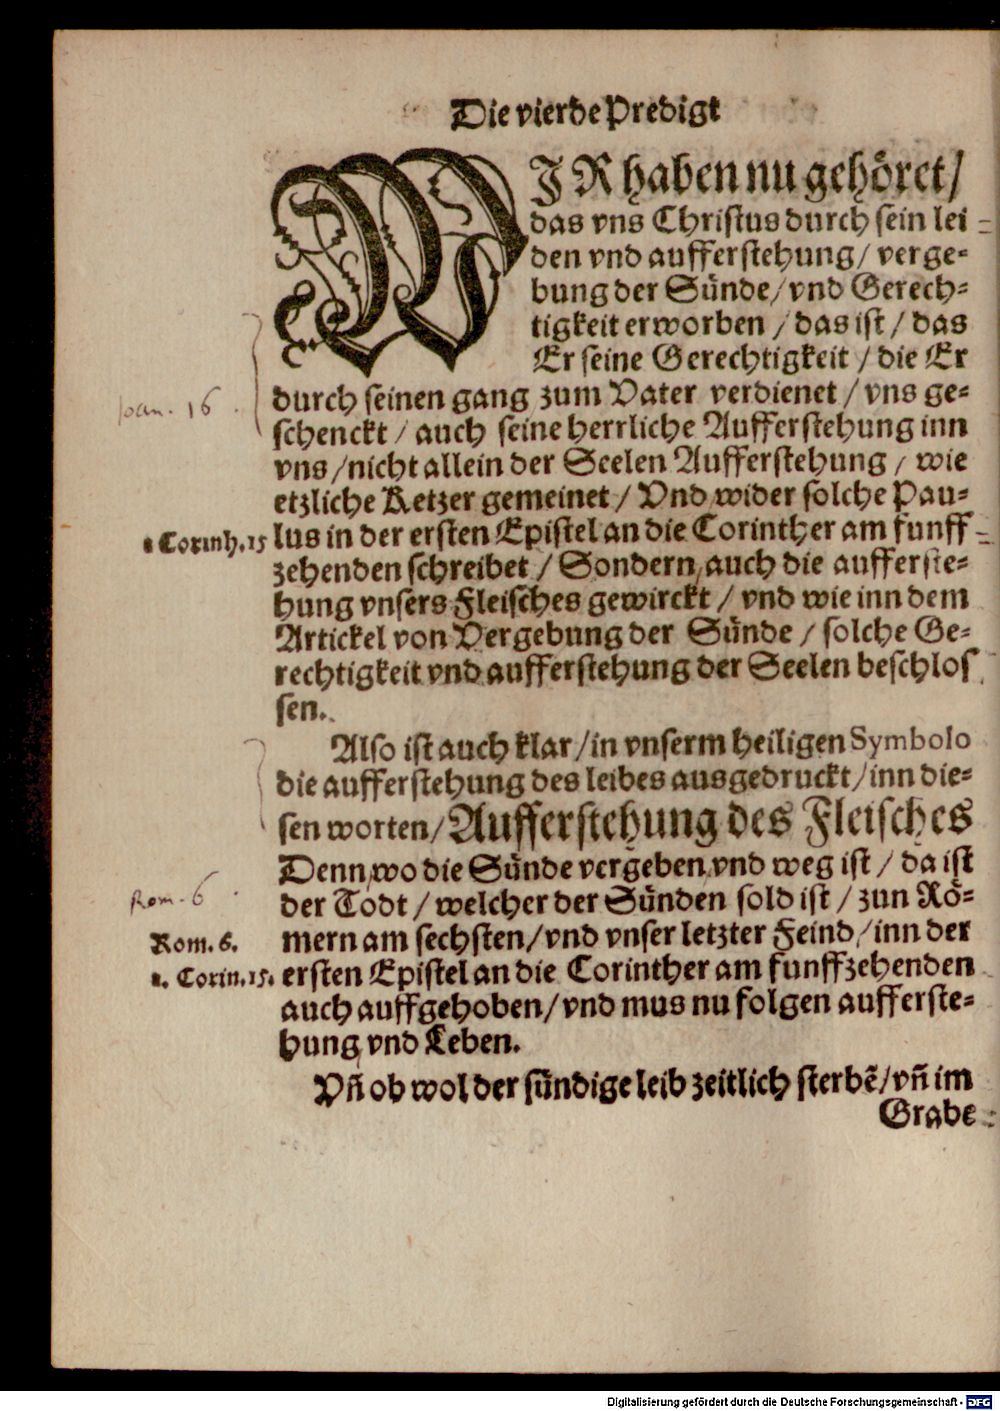 Die vierde Predigt
WJR haben nu gehöret/
das vns Christus durch sein lei=
den vnd aufferstehung/ verge=
bung der Sünde/vnd Gerech=
tigkeit erworben /das ist/ das
Er seine Gerechtigkeit /die Er
durch seinen gang zum Vater verdienet /vns ge=
Joan. 16
schenckt / auch seine herrliche Aufferstehung inn
vns /nicht allein der Seelen Aufferstehung / wie
etzliche Ketzer gemeinet / Vnd wider solche Pau=
lus in der ersten Epistel an die Corinther am funff=
1 Corinh. 15
zehenden schreibet / Sondern auch die aufferste=
hung vnsers Fleisches gewirckt / vnd wie inn dem
Artickel von Vergebung der Sünde / solche Ge=
rechtigkeit vnd aufferstehung der Seelen beschlos
sen.
Also ist auch klar/in vnserm heiligen Symbolo
die aufferstehung des leibes ausgedruckt/inn die=
sen worten/Aufferstehung des Fleisches
Denn wo die Sünde vergeben vnd weg ist / da ist
der Todt / welcher der Sünden sold ist / zun Rö=
Rom. 6
mern am sechsten/vnd vnser letzter Feind /inn der
Rom. 6.
ersten Epistel an die Corinther am funffzehenden
1. Corin. 15.
auch auffgehoben/vnd mus nu folgen aufferste=
hung vnd Leben.
Vñ ob wol der sündige leib zeitlich sterbẽ/vñ im
Grabe
Digitalisierung gefördert durch die Deutsche Forschungsgemeinschaft - DFG